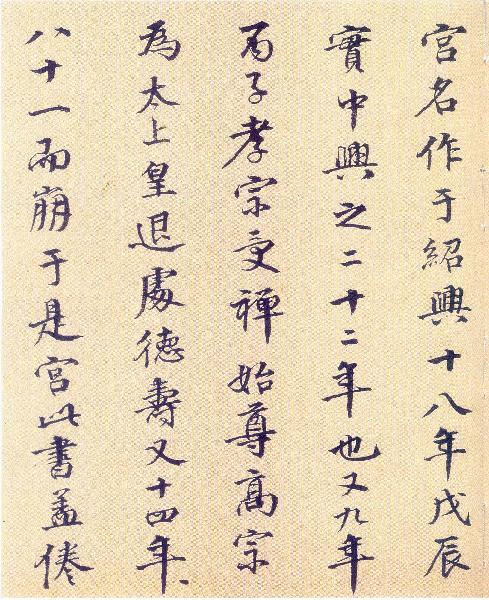 宮名作于紹興十八年戊辰
實中興之二十二年也又九年
丙子孝宗受禪始尊高宗
為太上皇退處德壽又十四年
八十一而崩于是宮此書蓋倦